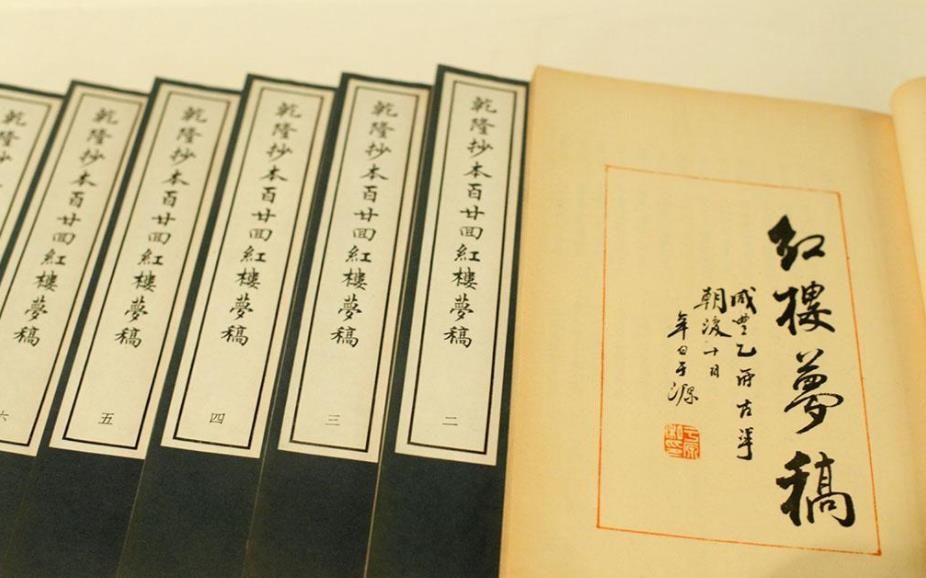 红樓夢稿
咸豐乙卯古華
朝後十日
辛白于源
乾隆抄本百廿回紅樓夢稿
二
乾隆抄本百廿回紅樓夢稿
三
乾隆抄本百廿回紅樓夢稿
四
乾隆抄本百廿回紅樓夢稿
五
乾隆抄本百廿回紅樓夢稿
六
乾隆抄本